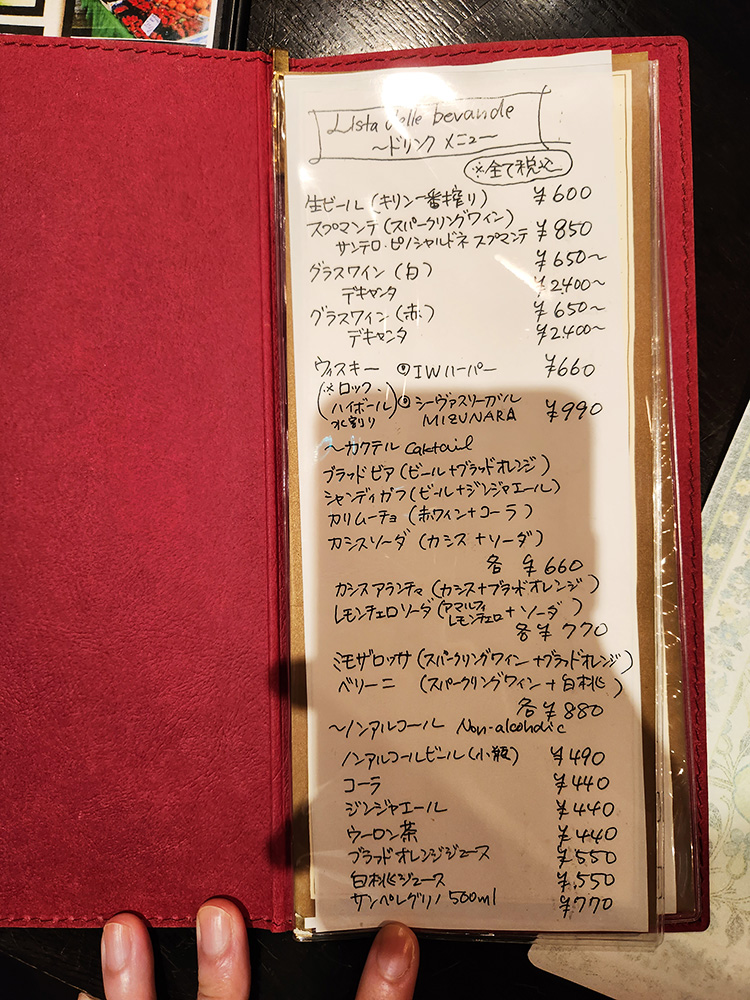 Lista delle bevande
～ドリンクメニュー～
※全て税込
生ビール（キリン一番搾り） ¥600
スプマンテ（スパークリングワイン） ¥850
サンテロ・ピノシャルドネ スプマンテ
グラスワイン（白） ¥650～
デキャンタ ¥2.400～
グラスワイン（赤） ¥650～
デキャンタ ¥2.400～
ウィスキー ⦿ IWハーパー ¥660
（※ロック、
ハイボール ⦿ シーヴァスリーガル ¥990
水割り） MIZUNARA
～カクテル Caktail
ブラッドビア（ビール+ブラッドオレンジ）
シャンディガフ（ビール+ジンジャエール）
カリムーチョ（赤ワイン+コーラ）
カシスソーダ（カシス+ソーダ）
各 ¥660
カシスアランチャ（カシス+ブラッドオレンジ）
レモンチェロソーダ（アマルフィレモンチェロ+ソーダ）
各¥770
ミモザロッサ（スパークリングワイン+ブラッドオレンジ）
ベリーニ （スパークリングワイン+白桃）
各¥880
～ノンアルコール Non-alcoholic
ノンアルコールビール（小瓶） ¥490
コーラ ¥440
ジンジャエール ¥440
ウーロン茶 ¥440
ブラッドオレンジジュース ¥550
白桃ジュース ¥550
サンペレグリノ 500ml ¥770